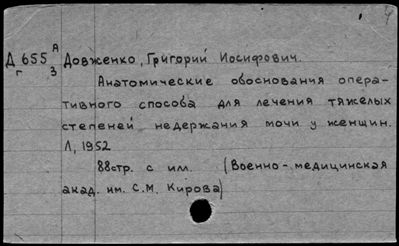 Д 655 А Довженко, Григорий Иосифович.
г 3
Анатомические обоснования опера-
тивного способа для лечения тяжелых
степеней недержания мочи у женщин.
Л, 1952
88стр. с ил. (Военно-медицинская
акад. им. С.М. Кирова)